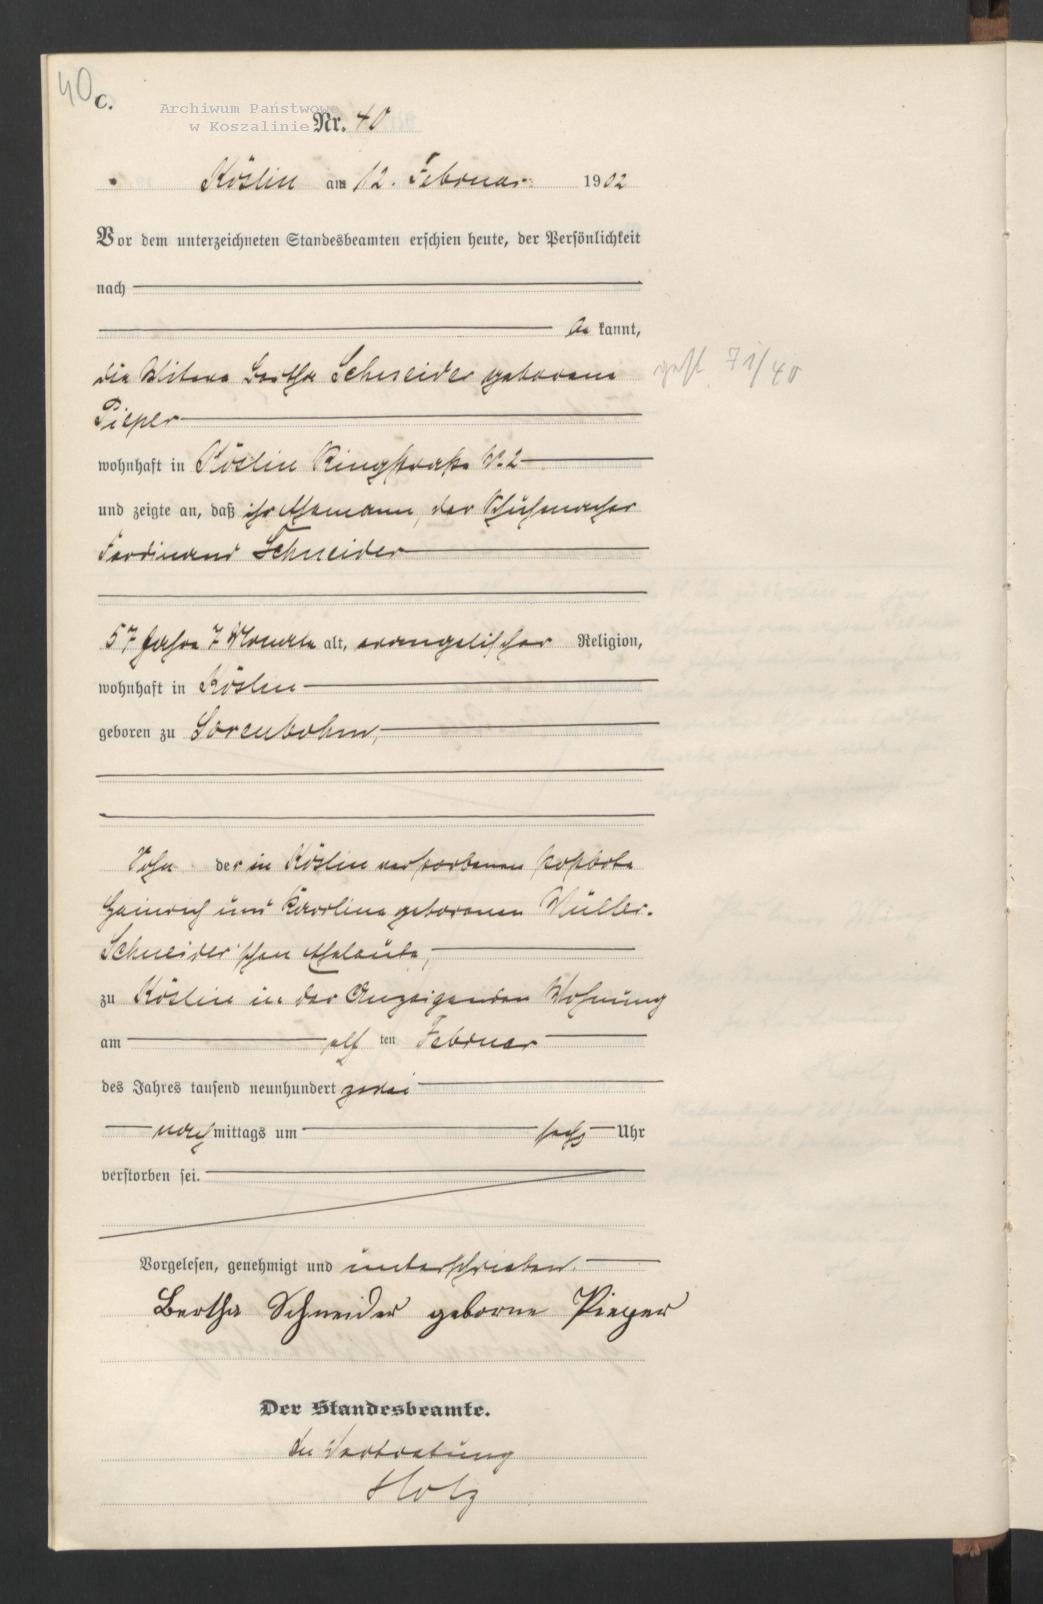 40
C.
Archiwum Państwowe
w Koszalinie
Nr. 40
Köslin am 12. Februar 1902
Vor dem unterzeichneten Standesbeamten erschien heute, der Persönlichkeit
nach
be kannt,
die Witwe Bertha Schneider geborene
71/40
Pieper
wohnhaft in Köslin Ringstraße N. 2
und zeigte an, daß ihr Ehemann, der Schuhmacher
Ferdinand Schneider
57 Jahre 7 Monate alt, evangelischer Religion,
wohnhaft in Köslin
geboren zu Sorenbohm,
Sohn der in Köslin verstorbenen Postbote
Heinrich und Karoline geborenen Müller-
Schneider'schen Eheleute,
zu Köslin in der Anzeigenden Wohnung
am elf ten Februar
des Jahres tausend neunhundert zwei
nach mittags um sechs Uhr
verstorben sei.
Vorgelesen, genehmigt und unterschrieben.
Bertha Schneider geborne Pieper
Der Standesbeamte.
In Vertretung
Holz